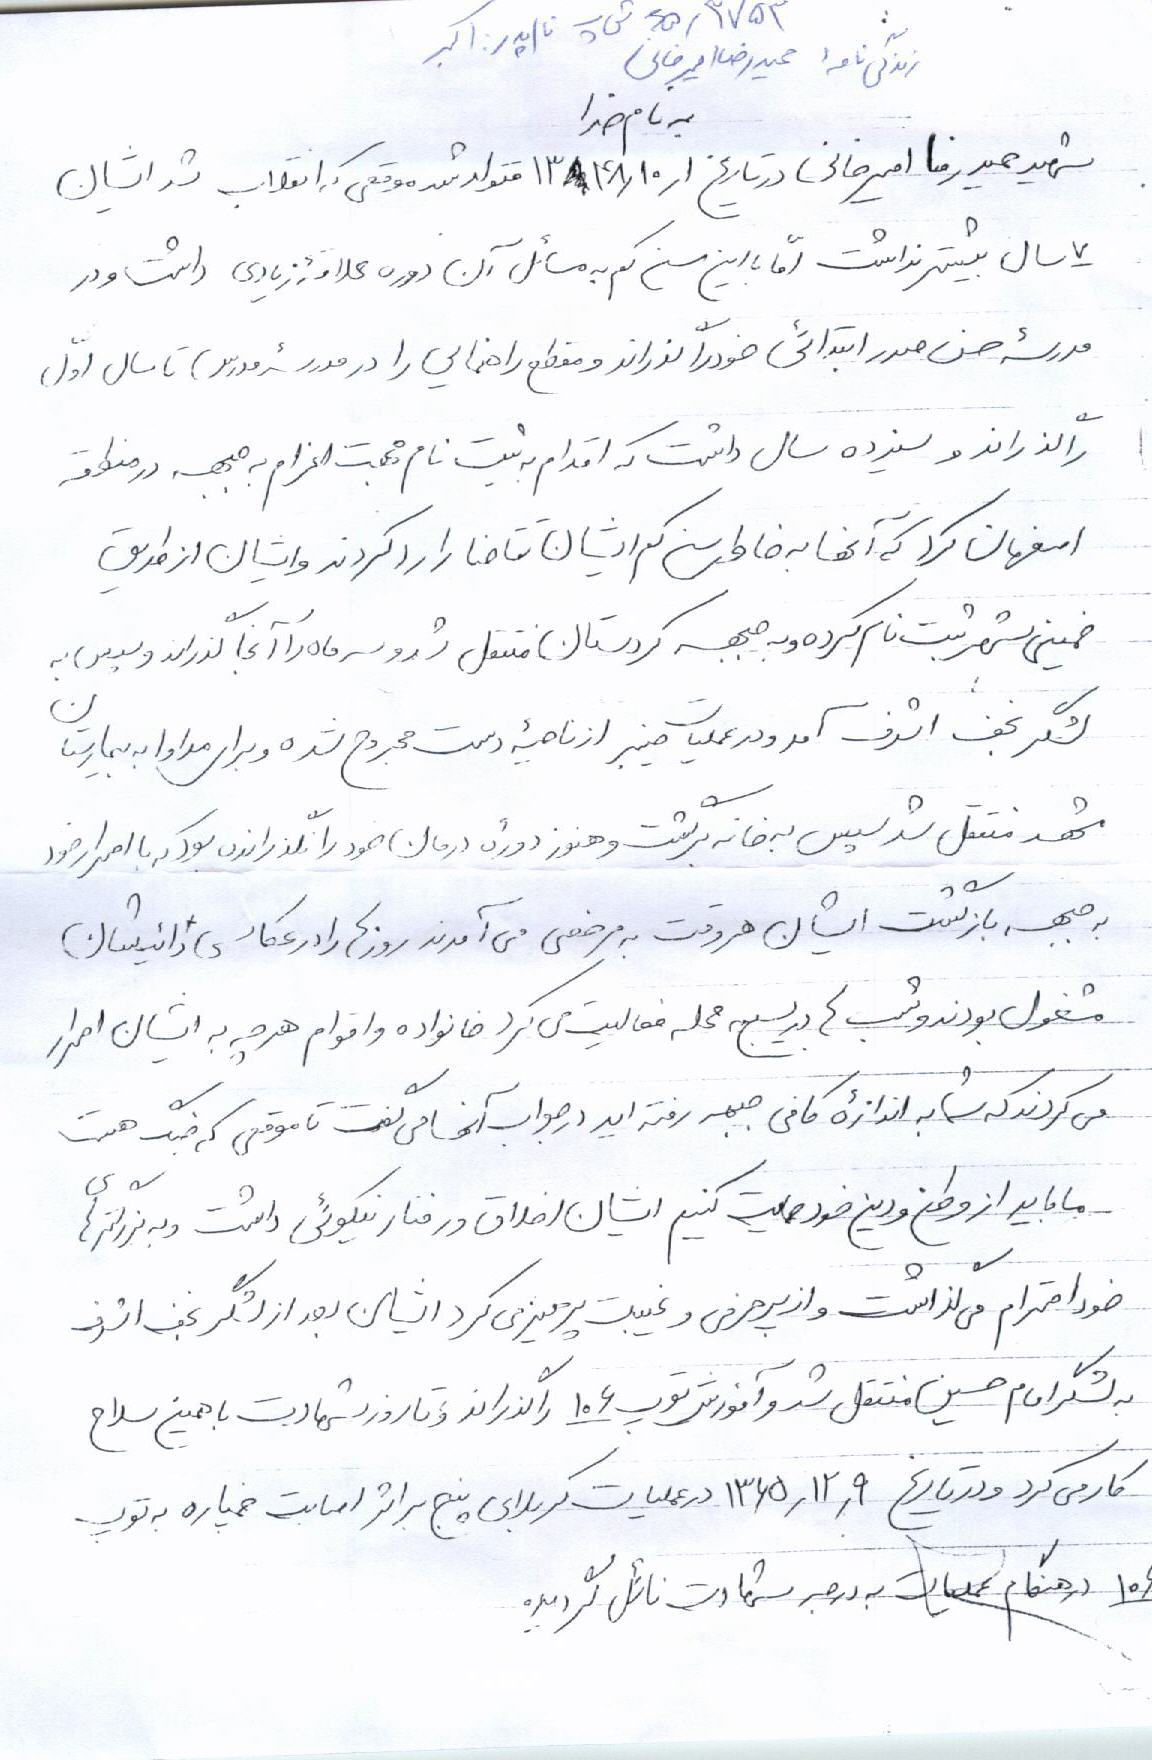 ۶۵/۳۷۵۳ ش پ نام پدر: اکبر
زندگی نامهٔ حمیدرضا امیرخانی
به نام خدا
شهید حمیدرضا امیرخانی در تاریخ ۱۳۴۸٫۱۰٫۱ متولد شد موقعی که انقلاب شد ایشان
۷ سال بیشتر نداشت امّا با این سن کم به مسائل آن دوره علاقهٔ زیادی داشت و در
مدرسهٔ حسن صدر ابتدائی خود را گذراند و مقطع راهنمایی را در مدرسهٔ مدرس تا سال اوّل
را گذراند و سیزده سال داشت که اقدام به ثبت نام جهت اعزام به جبهه در منطقه
اصفهان کرد که آنها به خاطر سن کم ایشان تقاضا را رد کردند و ایشان از طریق
خمینی شهر ثبت نام کرده و به جبهه کردستان منتقل شد و سه ماه را آنجا گذراند و سپس به
لشگر نجف اشرف آمد و در عملیات خیبر از ناحیهٔ دست مجروح شده و برای مداوا به بیمارستان
مشهد منتقل شد سپس به خانه برگشت و هنوز دورهٔ درمان خود را نگذرانده بود که با اصرار خود
به جبهه بازگشت ایشان هر وقت به مرخصی می آمدند روزها را در عکاسی دائیشان
مشغول بودند و شب ها در بسیج محله فعالیت می کرد خانواده و اقوام هر چه به ایشان اصرار
می کردند که شما به اندازهٔ کافی جبهه رفته اید در جواب آنها می گفت تا موقعی که جنگ هست
ما باید از وطن و دین خود حمایت کنیم ایشان اخلاق و رفتار نیکوئی داشت و به بزرگترهای
خود احترام می گذاشت و از پرحرفی و غیبت پرهیز می کرد ایشان بعد از لشگر نجف اشرف
به لشگر امام حسین منتقل شد و آموزش توپ ۱۰۶ را گذراند و تا روز شهادت با همین سلاح
کار می کرد و در تاریخ ۱۳۶۵٫۱۲٫۹ در عملیات کربلای پنج بر اثر اصابت خمپاره به توپ
۱۰۶ در هنگام عملیات به درجه شهادت نائل گردیده